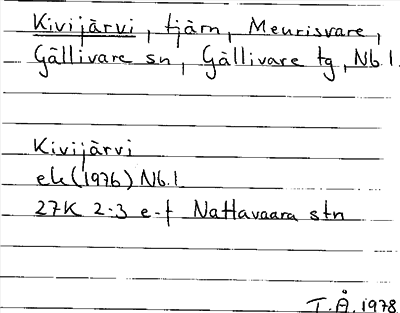 Kivijärvi, tjärn, Meurisvare,
Gällivare sn, Gällivare tg, Nb.l.
Kivijärvi
ek (1976) Nb.l
27K 2-3 e-f Nattavaara stn
T.Å. 1978